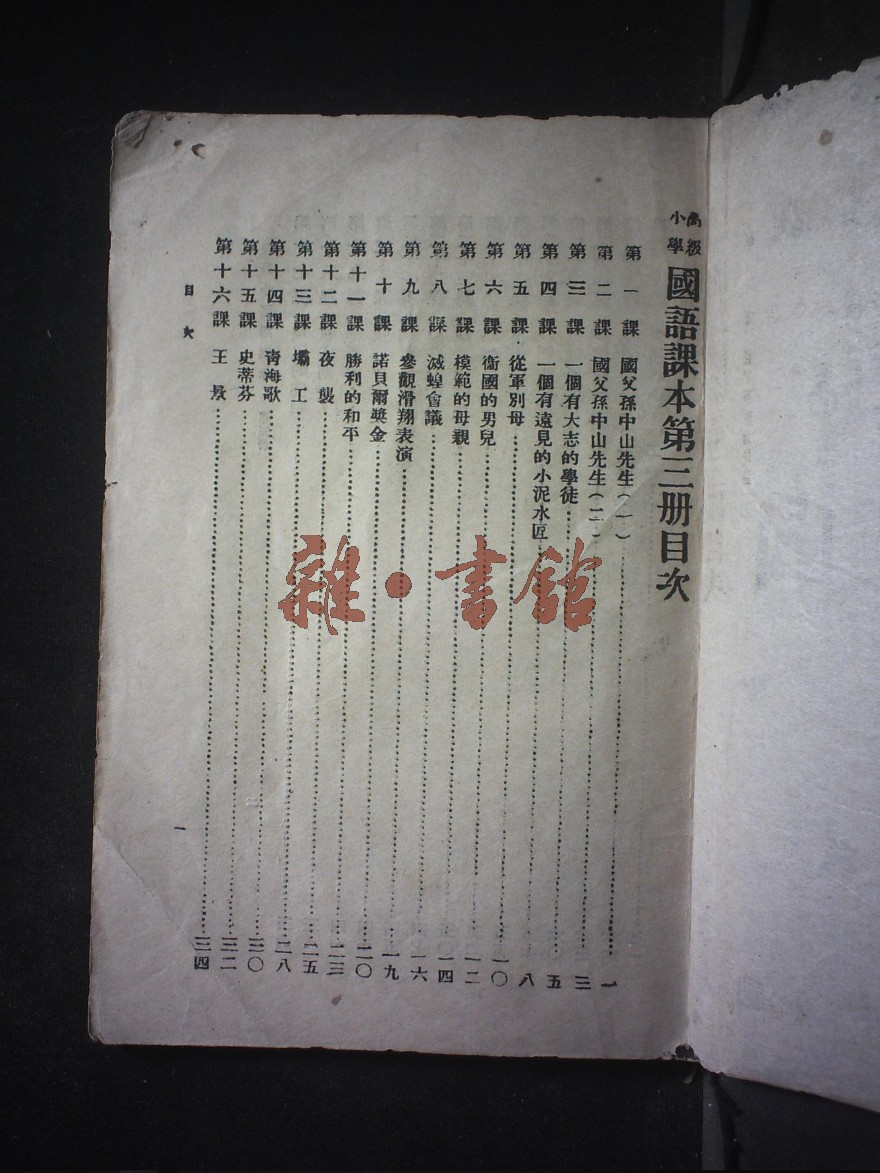 高級小學國語課本第三册目次
第一課 國父孫中山先生(一)……一
第二課 國父孫中山先生(二)……三
第三課 一個有大志的學徒……五
第四課 一個有遠見的小泥水匠……八
第五課 從軍別母……一〇
第六課 衞國的男兒……一二
第七課 模範的母親……一四
第八課 滅蝗會議……一六
第九課 參觀滑翔表演……一九
第十課 諾貝爾奬金……二〇
第十一課 勝利的和平……二三
第十二課 夜襲……二五
第十三課 壩工……二八
第十四課 青海歌……三〇
第十五課 史蒂芬……三二
第十六課 王冕……三四
目次
一
雜·書館